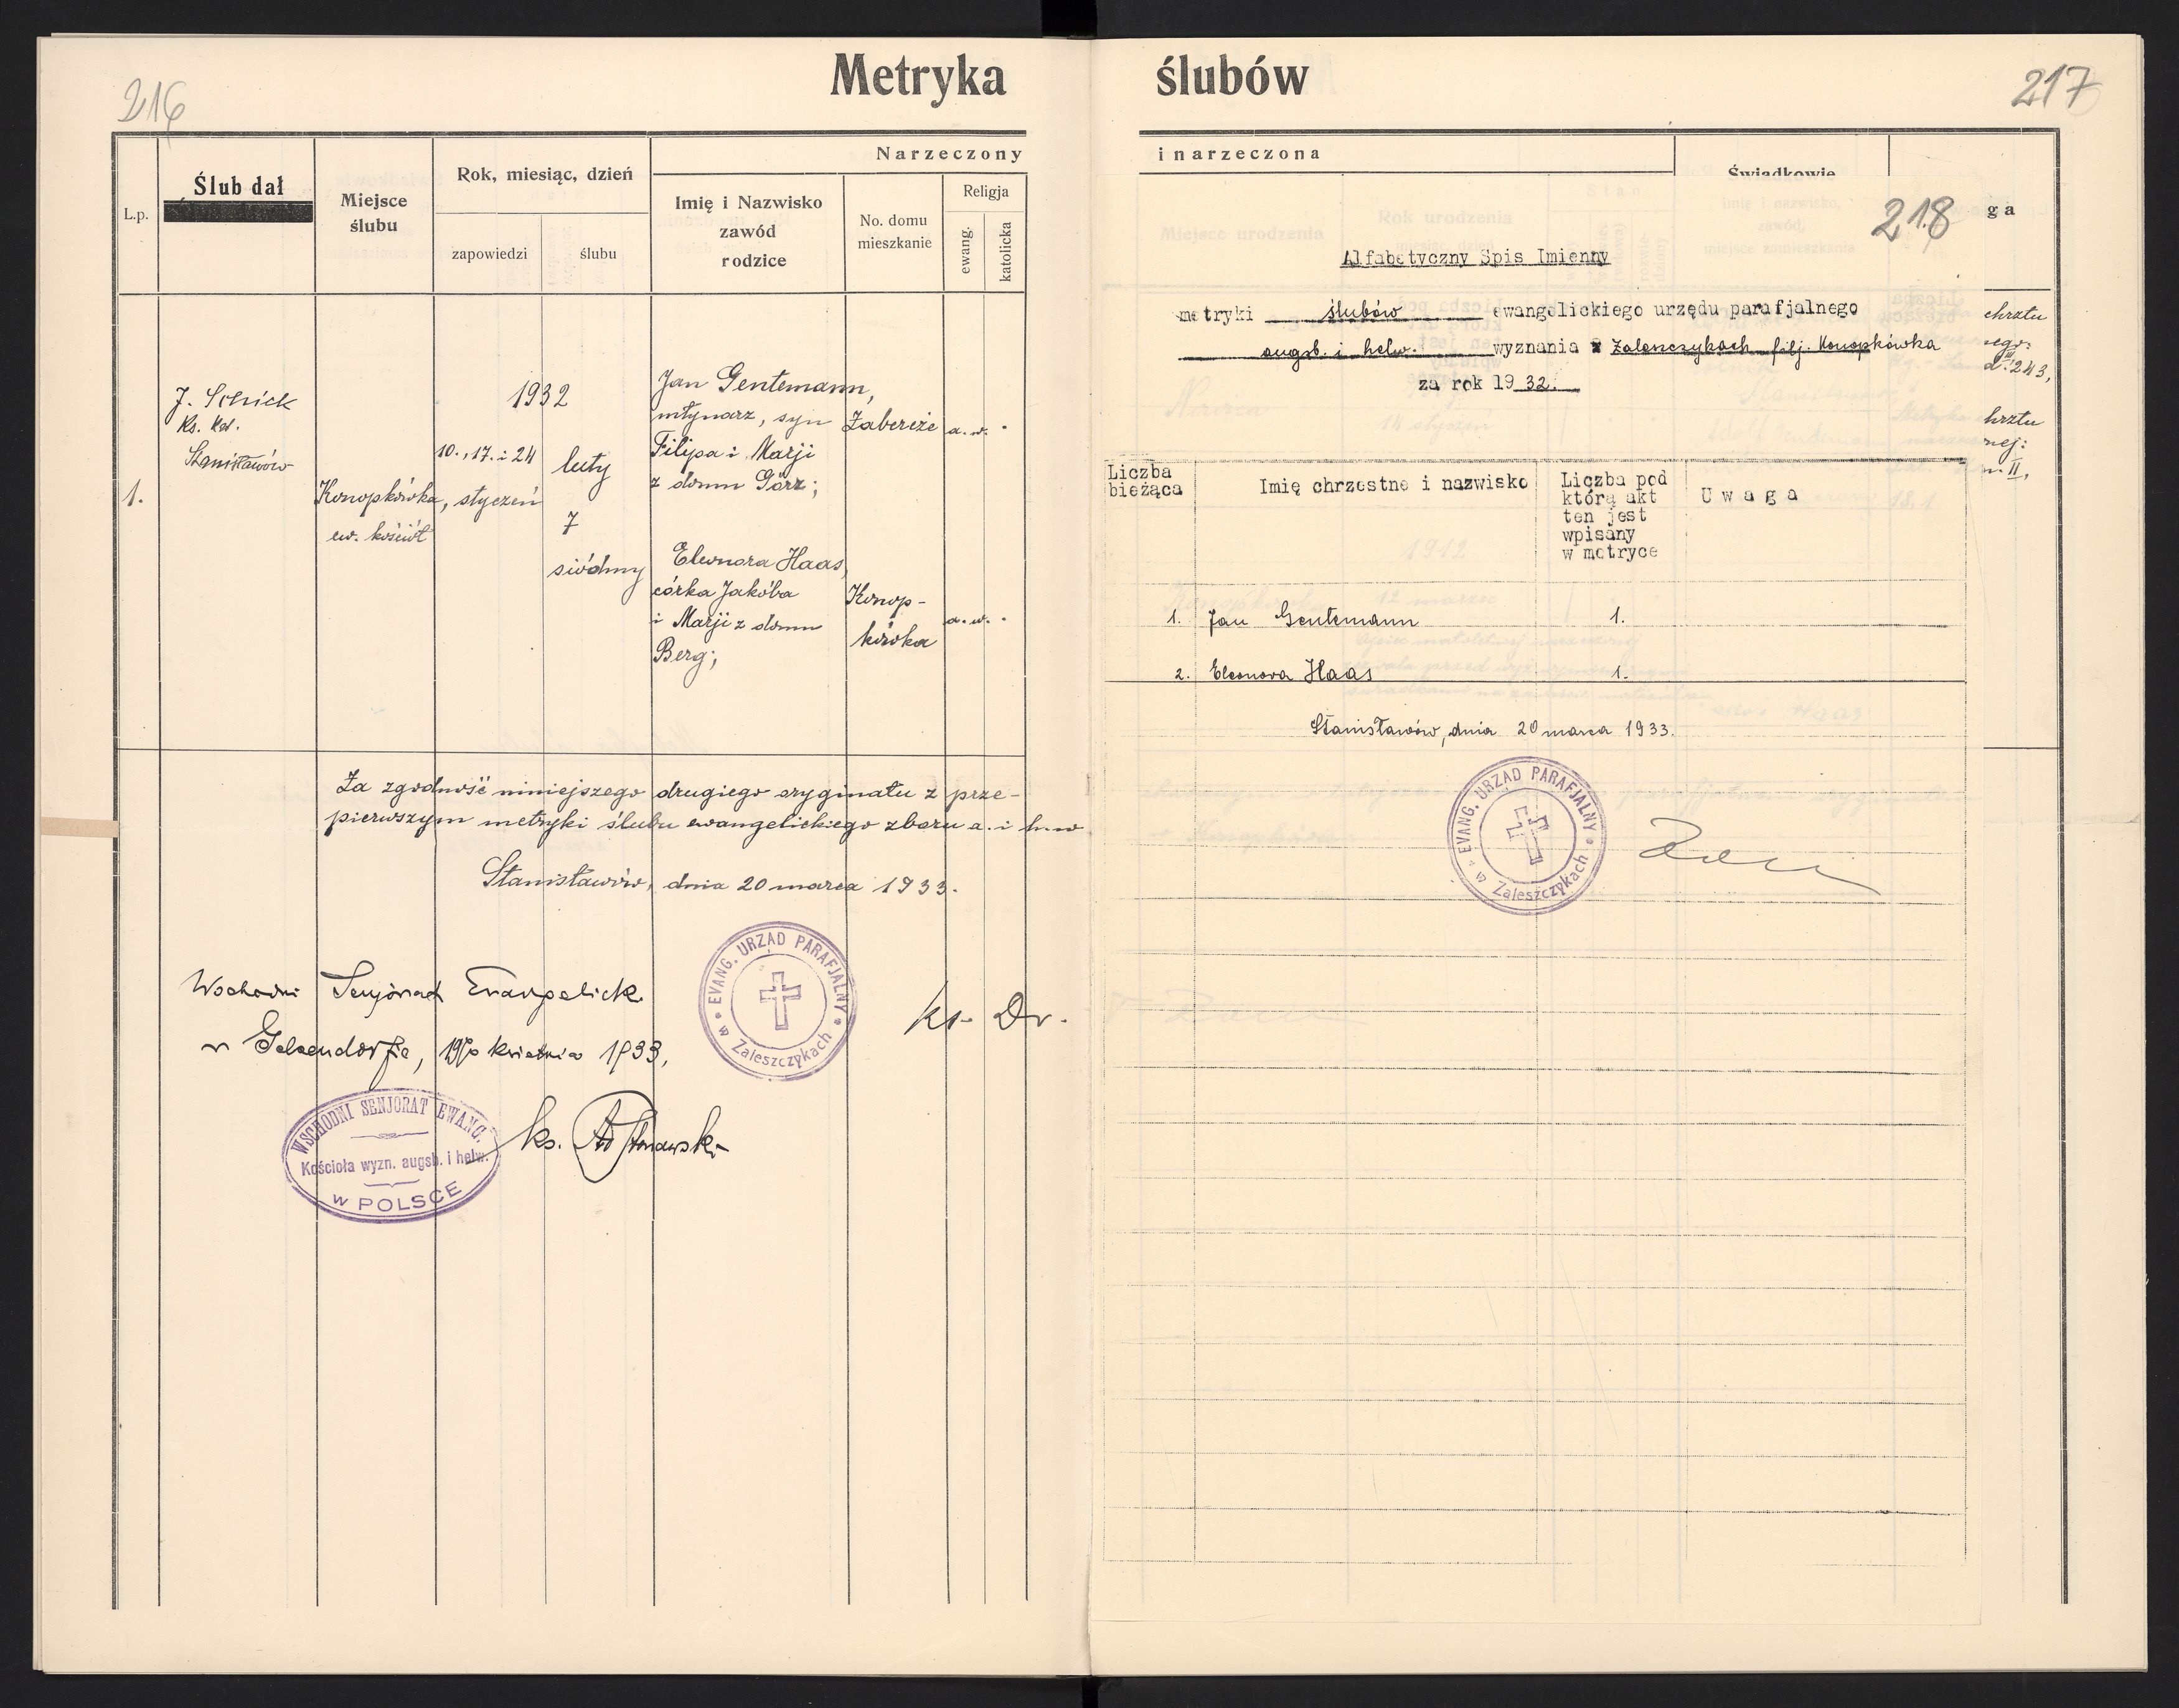 216
Metryka
L.p.
Ślub dał
Miejsce
ślubu
Rok, miesiąc, dzień
zapowiedzi
ślubu
Narzeczony
Imię i Nazwisko
zawód
rodzice
No. domu
mieszkanie
Religja
ewang.
katolicka
1.
J. Schick
Ks. Kat.
Stanisławów
Konopkówka,
ew. kościół
1932
10., 17. i 24
styczeń
luty
7
siódmy
Jan Gentemann,
młynarz, syn
Filipa i Marji
z domu Görz;
Zabereże
a. w.
Eleonora Haas,
córka Jakóba
i Marji z domu
Berg;
Konop-
kówka
a. w.
Za zgodność niniejszego drugiego oryginału z prze-
pierwszym metryki ślubu ewangelickiego zboru a. i h. w
Stanisławów, dnia 20 marca 1933.
EVANG. URZĄD PARAFJALNY
w Zaleszczykach
Wschodni Senjorat Ewangelick.
w Gelsendorfie, 19go kwietnia 1933.
ks. Dr.
WSCHODNI SENJORAT EWANG.
Kościoła wyzn. augsb. i helw.
w POLSCE
ks.
ślubów
217
i narzeczona
Świadkowie
ga
218
Alfabetyczny Spis Imienny
metryki ślubów ewangelickiego urzędu parafjalnego
augsb. i helw. wyznania w Zaleszczykach filj. Konopkówka
za rok 19 32.
chrztu
243,
hrztu
nej:
II,
Liczba
bieżąca
Imię chrzestne i nazwisko
Liczba pod
którą akt
ten jest
wpisany
w metryce
Uwaga
1. Jan Gentemann 1.
2. Eleonora Haas 1.
Stanisławów, dnia 20 marca 1933.
EVANG. URZĄD PARAFJALNY
w Zaleszczykach